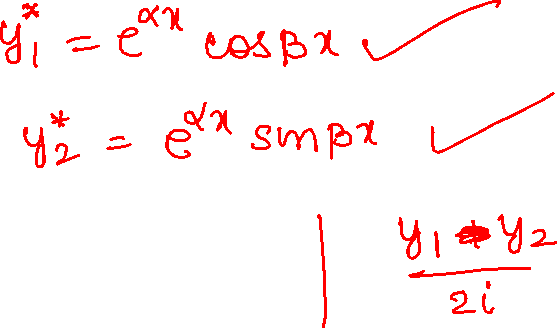 y₁* = e^{αx} cosβx ✓
y₂* = e^{αx} sinβx ✓
| (y₁ y₂)/2i